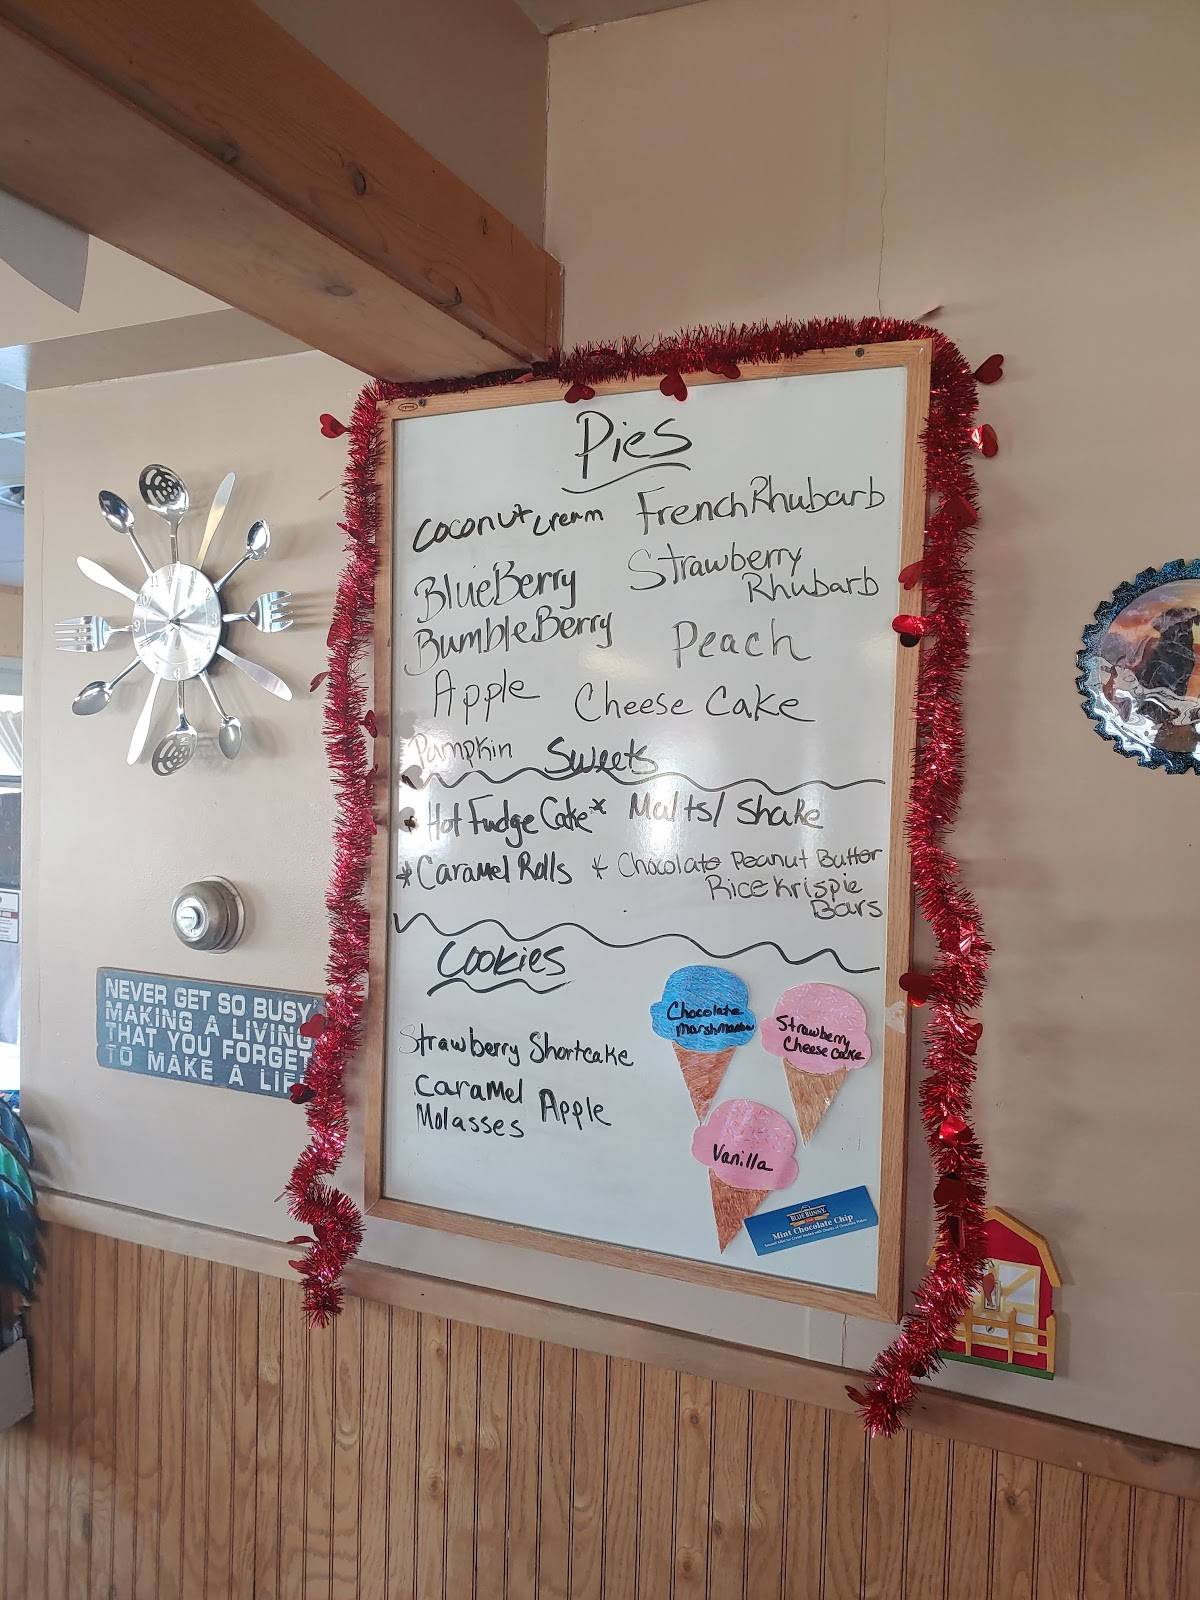 Pies
Coconut Cream
French Rhubarb
BlueBerry
Strawberry
Rhubarb
BumbleBerry
Peach
Apple
Cheese Cake
Pumpkin
Sweets
* Hot Fudge Cake *
Malts/Shake
* Caramel Rolls
* Chocolate Peanut Butter
Rice Krispie
Bars
Cookies
Strawberry Shortcake
Caramel Apple
Molasses
Chocolate
Marshmallow
Strawberry
Cheese cake
Vanilla
BLUE BUNNY
Mint Chocolate Chip
NEVER GET SO BUSY
MAKING A LIVING
THAT YOU FORGET
TO MAKE A LIF